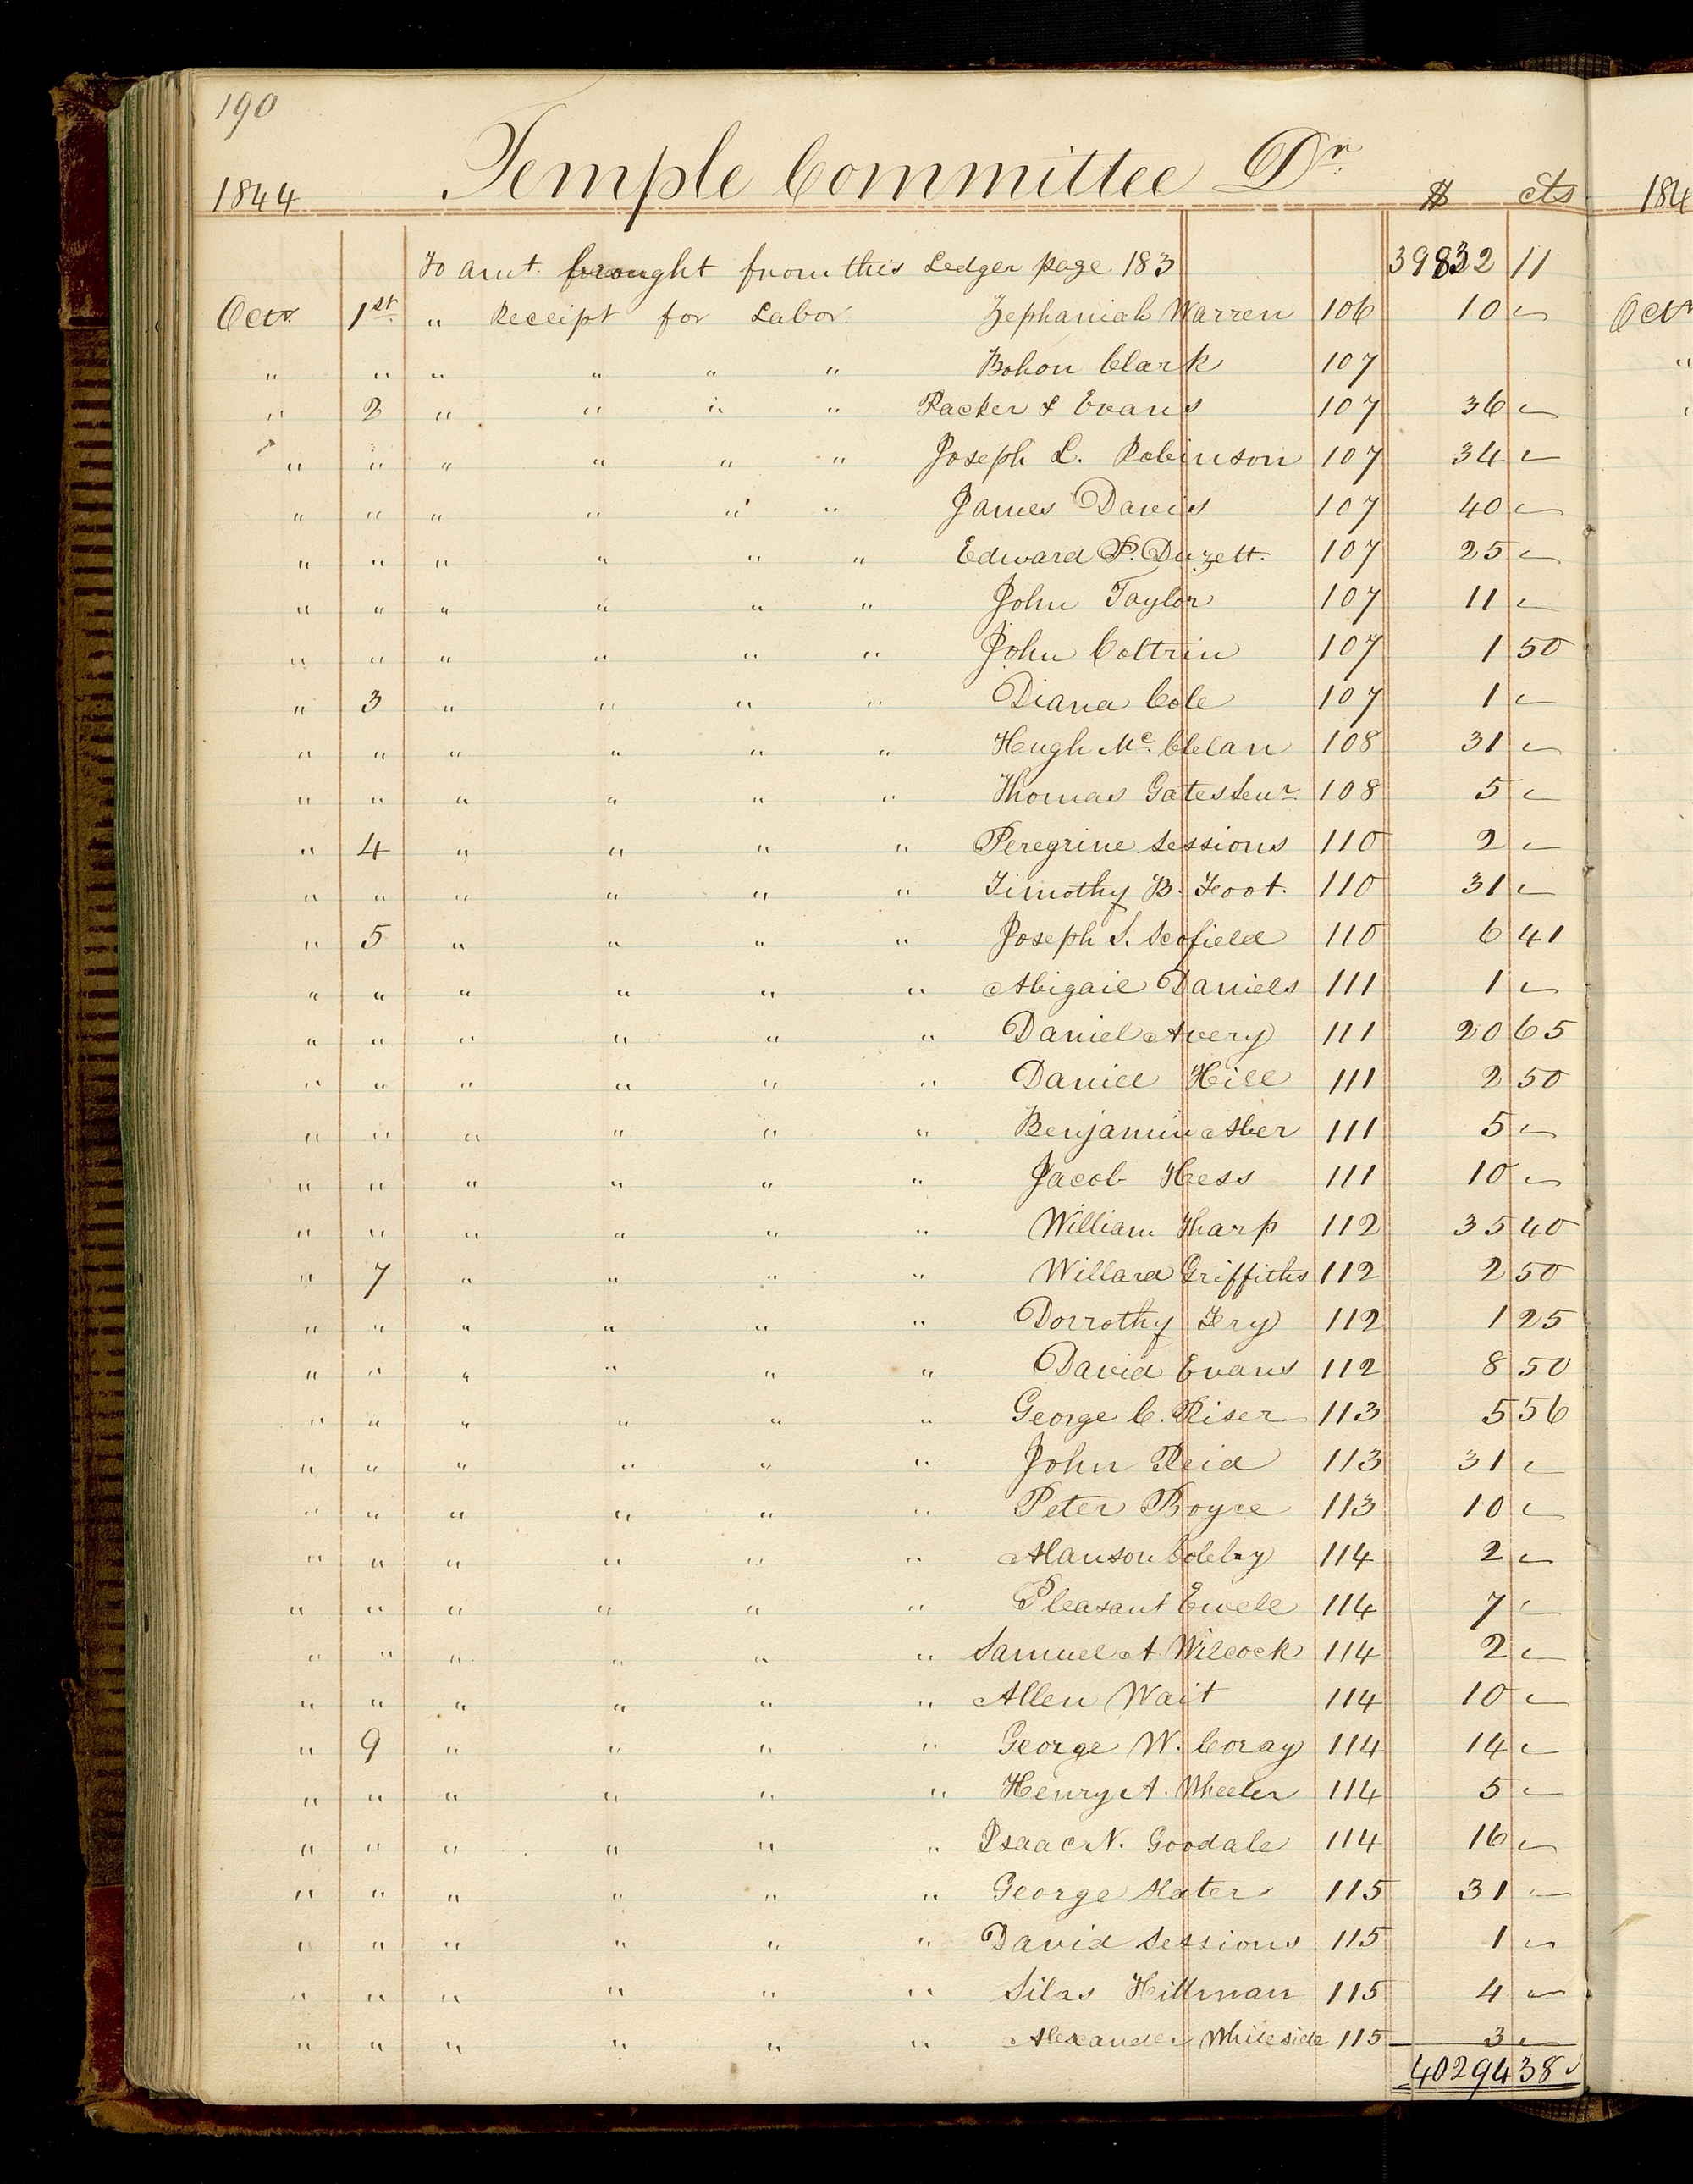 190
Temple Committee Dr.
1844 $ cts
To amt. brought from this Ledger page 183 39832 11
Octr. 1st. " Receipt for Labor. Zephaniah Warren 106 10 –
" " " " " " Bohon Clark 107
" 2 " " " " Packer & Evans 107 36 –
" " " " " " Joseph L. Robinson 107 34 –
" " " " " " James Davis 107 40 –
" " " " " " Edward P. Duzett. 107 25 –
" " " " " " John Taylor 107 11 –
" " " " " " John Coltrin 107 1 50
" 3 " " " " Diana Cole 107 1 –
" " " " " " Hugh Mc. Clelan 108 31 –
" " " " " " Thomas Gates Senr 108 5 –
" 4 " " " " Peregrine Sessions 110 2 –
" " " " " " Timothy B. Foot. 110 31 –
" 5 " " " " Joseph S. Scofield 110 6 41
" " " " " " Abigail Daniels 111 1 –
" " " " " " Daniel Avery 111 20 65
" " " " " " Daniel Hill 111 2 50
" " " " " " Benjamin Aber 111 5 –
" " " " " " Jacob Hess 111 10 –
" " " " " " William Tharp 112 35 40
" 7 " " " " Willard Griffiths 112 2 50
" " " " " " Dorrothy Fry 112 1 25
" " " " " " David Evans 112 8 50
" " " " " " George C. Riser 113 5 56
" " " " " " John Reid 113 31 –
" " " " " " Peter Boyce 113 10 –
" " " " " " Alanson Colby 114 2 –
" " " " " " Pleasant Ewell 114 7 –
" " " " " " Samuel A Wilcock 114 2 –
" " " " " " Allen Wait 114 10 –
" 9 " " " " George W. Coray 114 14 –
" " " " " " Henry A. Wheeler 114 5 –
" " " " " " Isaac N. Goodale 114 16 –
" " " " " " George Slater 115 31 –
" " " " " " David Sessions 115 1 –
" " " " " " Silas Hillman 115 4 –
" " " " " " Alexander Whiteside 115 3 –
40294 38
184
Octr
"